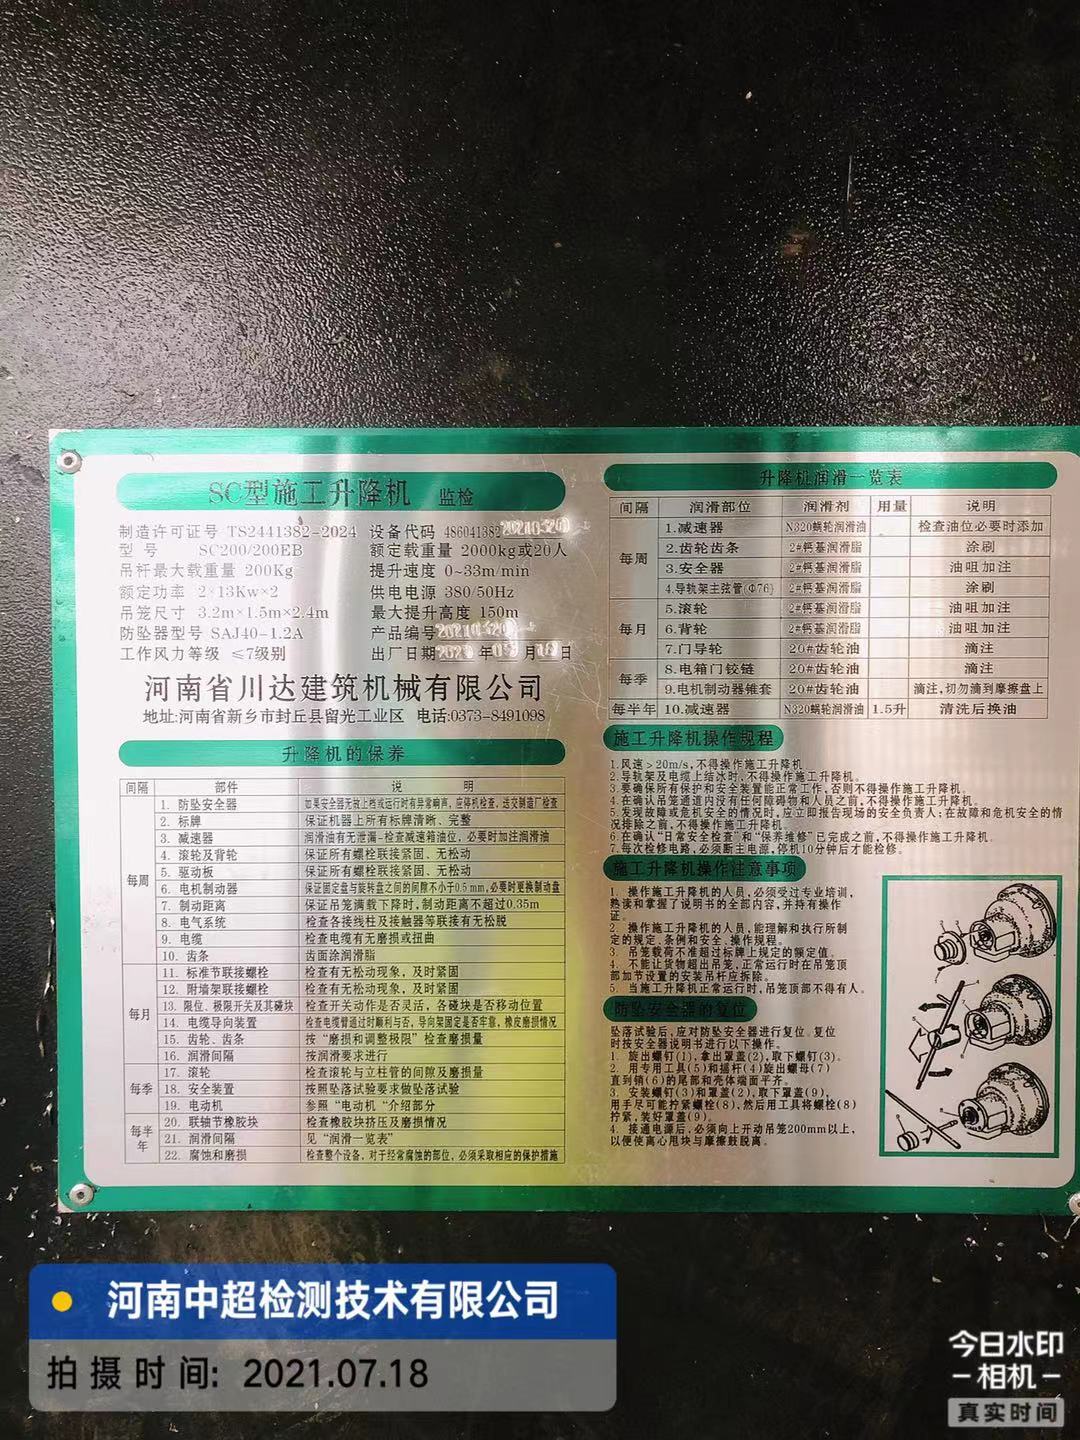 SC型施工升降机 监检
制造许可证号 TS2441382-2024 设备代码 486041382
型 号 SC200/200EB 额定载重量 2000kg或20人
吊杆最大载重量 200Kg 提升速度 0~33m/min
额定功率 2×13Kw×2 供电电源 380/50Hz
吊笼尺寸 3.2m×1.5m×2.4m 最大提升高度 150m
防坠器型号 SAJ40-1.2A 产品编号
工作风力等级 ≤7级别 出厂日期 年 月 日
河南省川达建筑机械有限公司
地址:河南省新乡市封丘县留光工业区 电话:0373-8491098
升降机的保养
间隔 部件 说 明
每周
1. 防坠安全器 如果安全器无故上档或运行时有异常响声，应停机检查，送交制造厂检查
2. 标牌 保证机器上所有标牌清晰、完整
3. 减速器 润滑油有无泄漏-检查减速箱油位，必要时加注润滑油
4. 滚轮及背轮 保证所有螺栓联接紧固、无松动
5. 驱动板 保证所有螺栓联接紧固、无松动
6. 电机制动器 保证固定盘与旋转盘之间的间隙不小于0.5mm,必要时更换制动盘
7. 制动距离 保证吊笼满载下降时,制动距离不超过0.35m
8. 电气系统 检查各接线柱及接触器等联接有无松脱
9. 电缆 检查电缆有无磨损或扭曲
10. 齿条 齿面涂润滑脂
每月
11. 标准节联接螺栓 检查有无松动现象，及时紧固
12. 附墙架联接螺栓 检查有无松动现象，及时紧固
13. 限位、极限开关及其碰块 检查开关动作是否灵活，各碰块是否移动位置
14. 电缆导向装置 检查电缆臂通过时顺利与否，导向架固定是否牢靠，橡皮磨损情况
15. 齿轮、齿条 按“磨损和调整极限”检查磨损量
16. 润滑间隔 按润滑要求进行
每季
17. 滚轮 检查滚轮与立柱管的间隙及磨损量
18. 安全装置 按照坠落试验要求做坠落试验
19. 电动机 参照“电动机“介绍部分
每半年
20. 联轴节橡胶块 检查橡胶块挤压及磨损情况
21. 润滑间隔 见“润滑一览表”
22. 腐蚀和磨损 检查整个设备，对于经常腐蚀的部位，必须采取相应的保护措施
升降机润滑一览表
间隔 润滑部位 润滑剂 用量 说明
每周
1.减速器 N320蜗轮润滑油 检查油位必要时添加
2.齿轮齿条 2#钙基润滑脂 涂刷
3.安全器 2#钙基润滑脂 油咀加注
4.导轨架主弦管(Φ76) 2#钙基润滑脂 涂刷
每月
5.滚轮 2#钙基润滑脂 油咀加注
6.背轮 2#钙基润滑脂 油咀加注
7.门导轮 20#齿轮油 滴注
每季
8.电箱门铰链 20#齿轮油 滴注
9.电机制动器锥套 20#齿轮油 滴注,切勿滴到摩擦盘上
每半年 10.减速器 N320蜗轮润滑油 1.5升 清洗后换油
施工升降机操作规程
1.风速＞20m/s,不得操作施工升降机.
2.导轨架及电缆上结冰时,不得操作施工升降机.
3.要确保所有保护和安全装置能正常工作,否则不得操作施工升降机.
4.在确认吊笼通道内没有任何障碍物和人员之前,不得操作施工升降机.
5.发现故障或危机安全的情况时,应立即报告现场的安全负责人;在故障和危机安全的情
况排除之前,不得操作施工升降机.
6.在确认“日常安全检查”和“保养维修”已完成之前,不得操作施工升降机.
7.每次检修电路,必须断主电源,停机10分钟后才能检修.
施工升降机操作注意事项
1. 操作施工升降机的人员,必须受过专业培训,
熟读和掌握了说明书的全部内容,并持有操作
证。
2. 操作施工升降机的人员,能理解和执行所制
定的规定、条例和安全、操作规程。
3. 吊笼载荷不准超过标牌上规定的额定值。
4. 不能让货物超出吊笼,正常运行时在吊笼顶
部加节设置的安装吊杆应拆除。
5. 当施工升降机正常运行时,吊笼顶部不得有人。
防坠安全器的复位
坠落试验后,应对防坠安全器进行复位.复位
时按安全器说明书进行以下操作。
1. 旋出螺钉(1),拿出罩盖(2),取下螺钉(3)。
2. 用专用工具(5)和摇杆(4)旋出螺母(7)
直到销(6)的尾部和壳体端面平齐。
3. 安装螺钉(3)和罩盖(2),取下罩盖(9),
用手尽可能拧紧螺栓(8),然后用工具将螺栓(8)
拧紧,装好罩盖(9)。
4. 接通电源后,必须向上开动吊笼200mm以上,
以便使离心甩块与摩擦鼓脱离。
河南中超检测技术有限公司
拍摄时间: 2021.07.18
今日水印
－相机－
真实时间